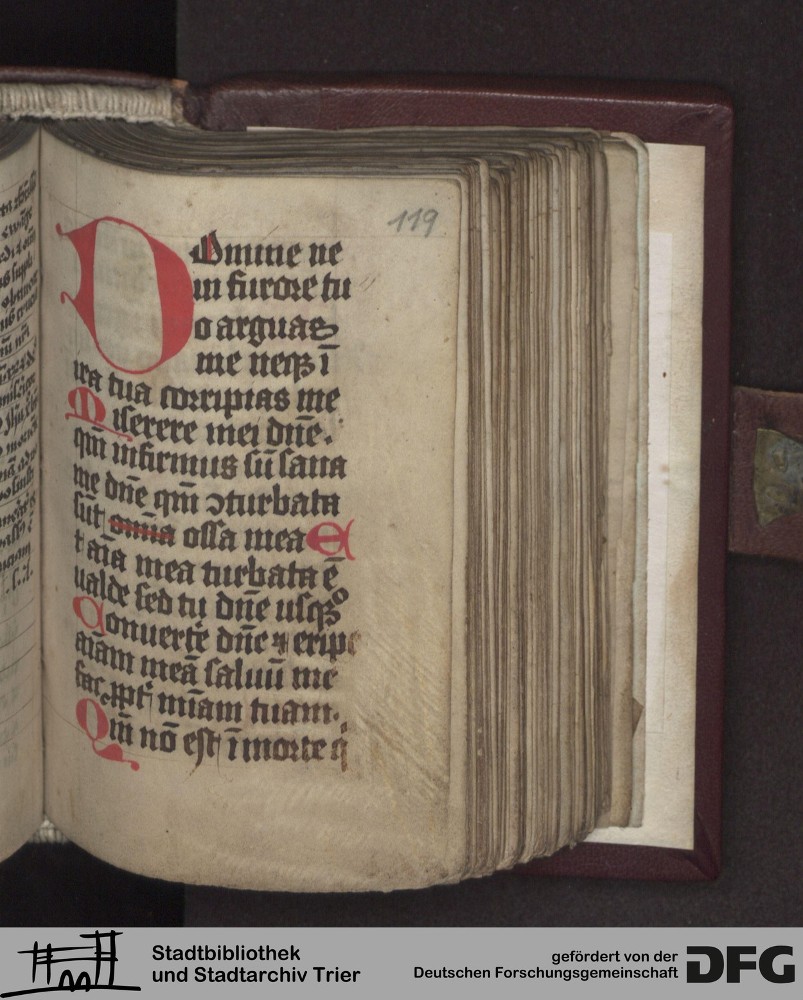 119
Domine ne
in furore tu
o arguas
me neqꝫ ī
ira tua corripias me
Miserere mei dn̄e.
qm̄ infirmus sū sana
me dn̄e qm̄ ꝯturbata
sūt om̄ia ossa mea E
t aīa mea turbata ē
ualde sed tu dn̄e usqꝫº
Conuerte dn̄e ⁊ eripe
aīam meā saluū me
fac ꝓpt̄ mīam tuam.
Qm̄ nō est ī morte q̄
Stadtbibliothek
und Stadtarchiv Trier
gefördert von der
Deutschen Forschungsgemeinschaft
DFG